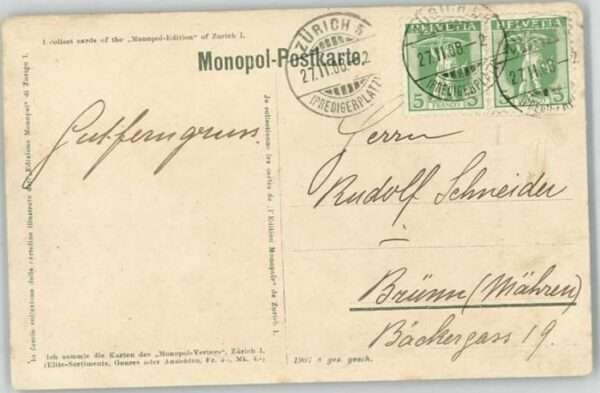 I collect cards of the „Monopol-Edition" of Zurich I.
Monopol-Postkarte.
ZÜRICH 5
27.11.08.
(PREDIGERPLATZ)
HELVETIA
HELVETIA
27.11.08
5 FRANCO 5
5
Gutferngruss.
Herrn
Rudolf Schneider
Brünn (Mähren)
Bäckergass 19.
Io faccio collezione delle cartoline illustrate della Edizione Monopol" di Zurigo I.
Je collectionne les cartes de l'Edition Monopole" de Zurich I.
Ich sammle die Karten des „Monopol-Verlags", Zürich I.
(Elite-Sortiments, Genres oder Ansichten,
1907 ges. gesch.